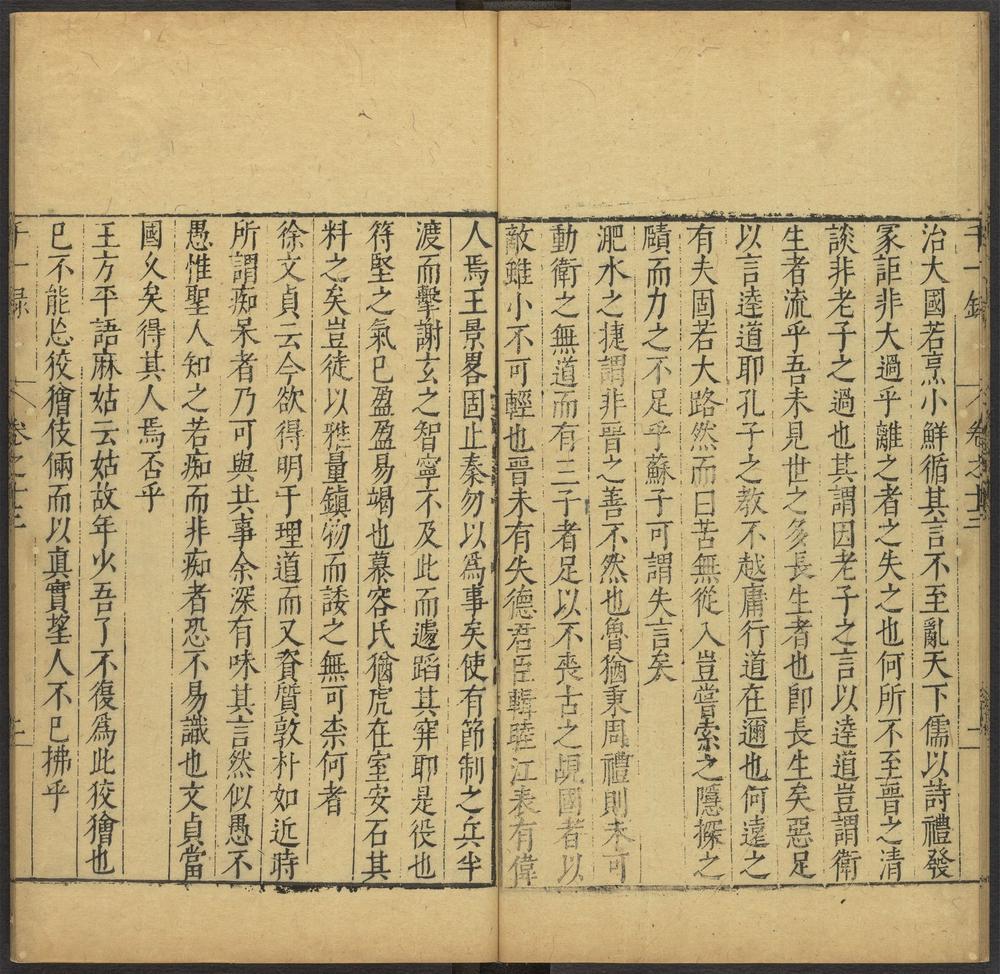 千一録 卷之十三 二
治大國若烹小鮮循其言不至亂天下儒以詩禮發
冢詎非大過乎離之者之失之也何所不至晉之清
談非老子之過也其謂因老子之言以逹道豈謂衛
生者流乎吾未見世之多長生者也卽長生矣惡足
以言逹道耶孔子之教不越庸行道在邇也何遠之
有夫固若大路然而曰苦無從入豈嘗索之隱探之
賾而力之不足乎蘇子可謂失言矣
淝水之捷謂非晉之善不然也魯猶秉周禮則未可
動衛之無道而有三子者足以不喪古之覘國者以
敵雖小不可輕也晉未有失德君臣輯睦江表有偉
人焉王景畧固止秦勿以爲事矣使有節制之兵半
渡而擊謝玄之智寧不及此而遽蹈其穽耶是役也
符堅之氣已盈盈易竭也慕容氏猶虎在室安石其
料之矣豈徒以雅量鎮物而諉之無可柰何者
徐文貞云今欲得明于理道而又資質敦朴如近時
所謂痴呆者乃可與共事余深有味其言然似愚不
愚惟聖人知之若痴而非痴者恐不易識也文貞當
國久矣得其人焉否乎
王方平語麻姑云姑故年少吾了不復爲此狡獪也
已不能忘狡獪伎倆而以眞實望人不已拂乎
千一録 卷之十三